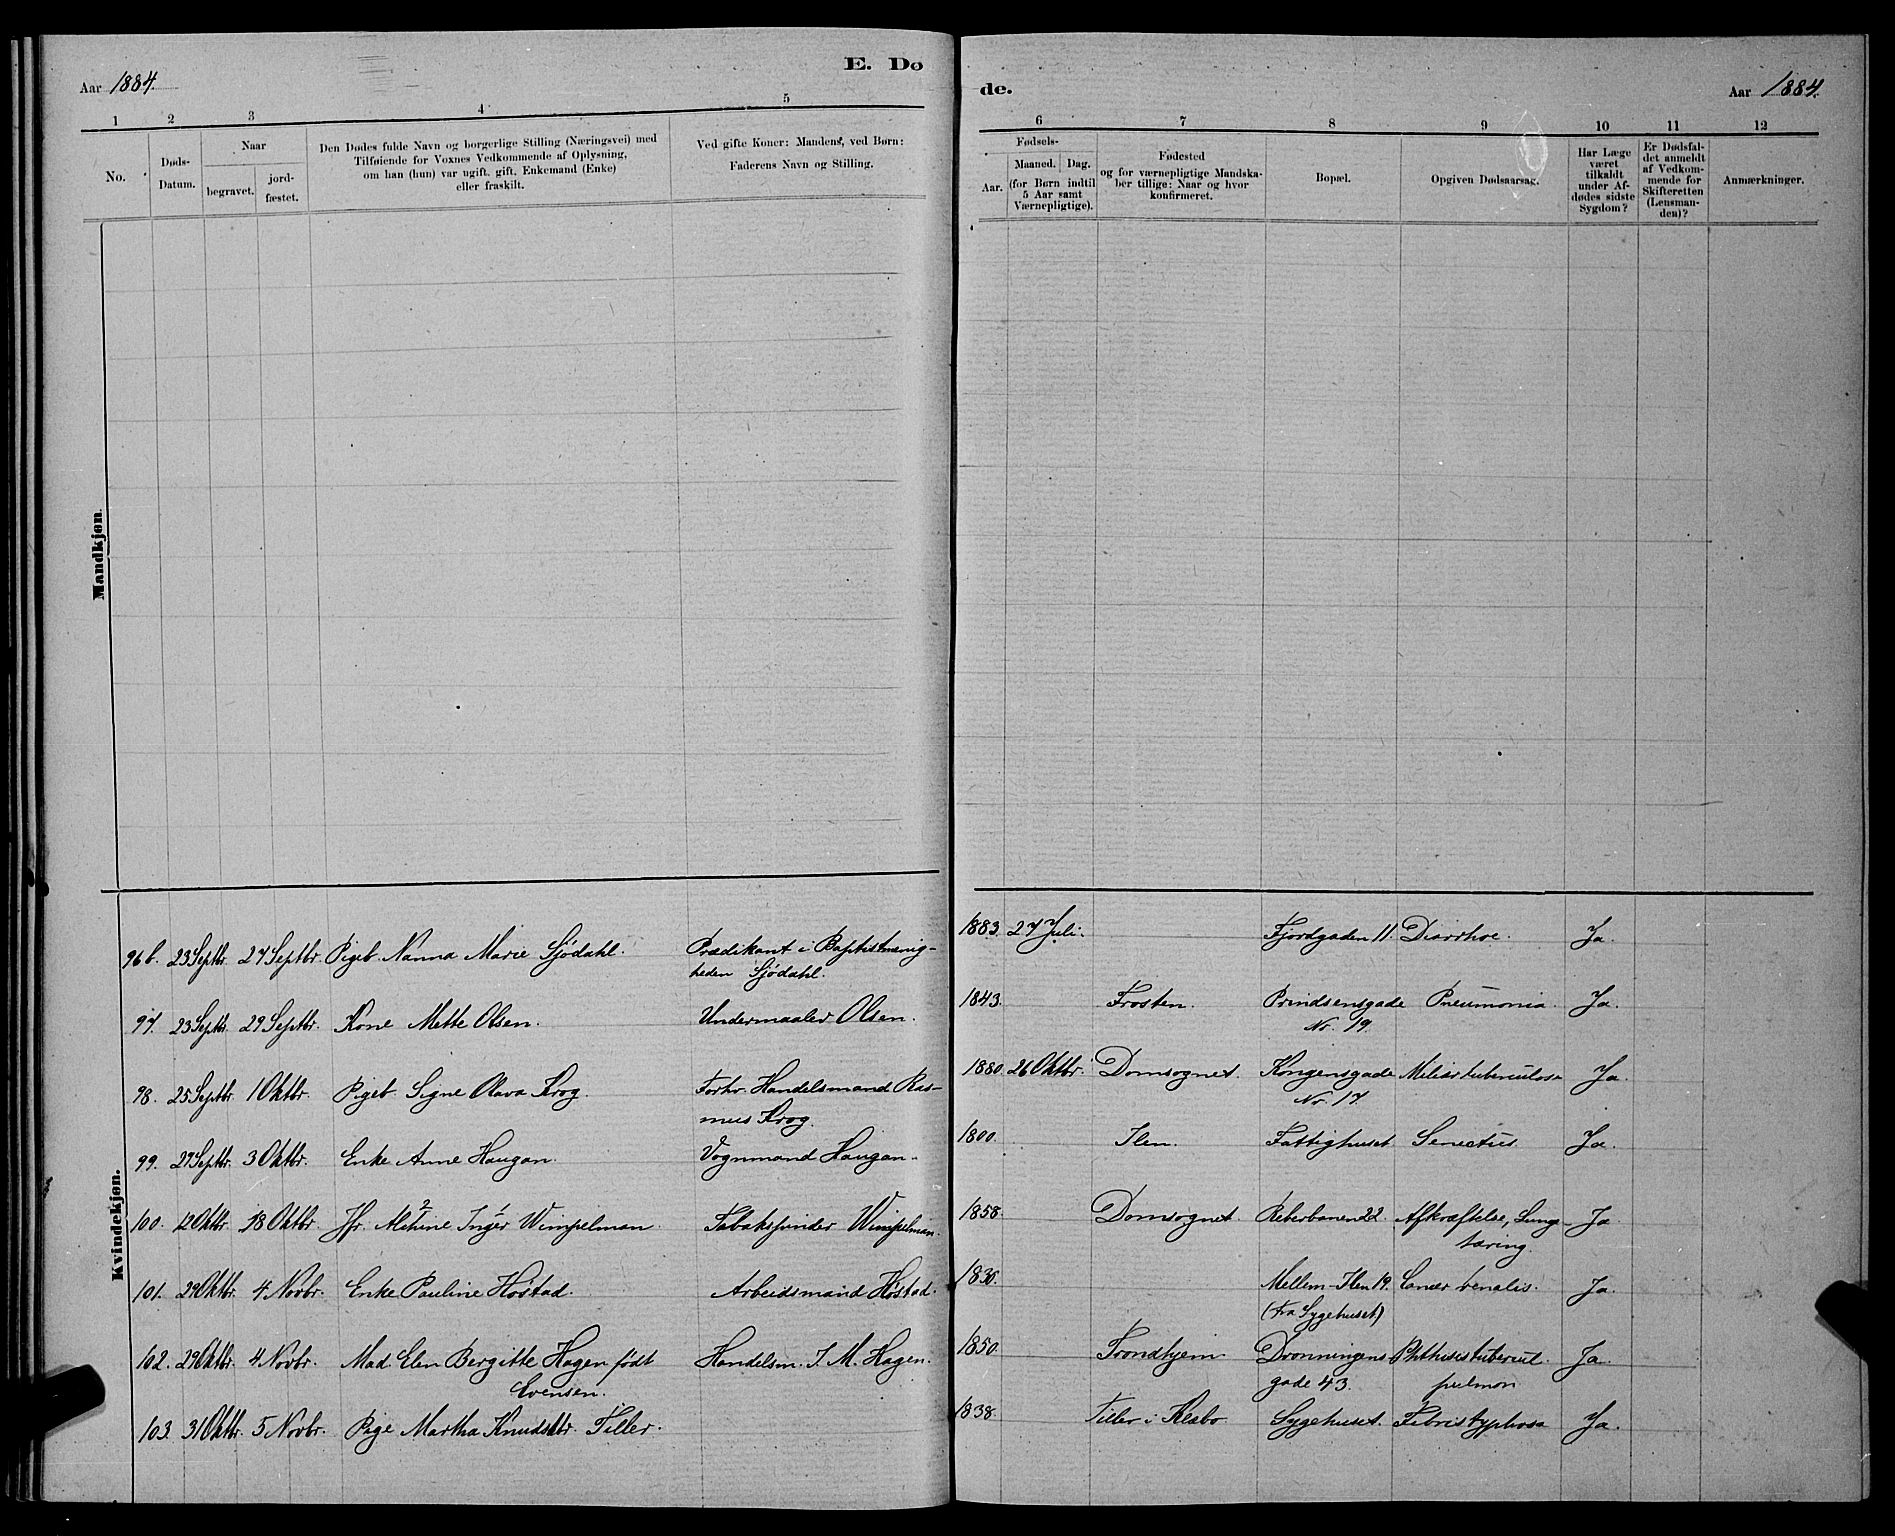 Aar 1884.
E. Dø
de.
Aar 1884.
1 2 3 4 5
6 7 8 9 10 11 12
No.
Døds-
Datum.
Naar
begravet.
jord-
fæstet.
Den Dødes fulde Navn og borgerlige Stilling (Næringsvei) med
Tilføiende for Voxnes Vedkommende af Oplysning,
om han (hun) var ugift, gift, Enkemand (Enke)
eller fraskilt.
Ved gifte Koner: Mandens, ved Børn:
Faderens Navn og Stilling.
Fødsels-
Aar.
Maaned. Dag.
(for Børn indtil
5 Aar samt
Værnepligtige).
Fødested
og for værnepligtige Mandska-
ber tillige: Naar og hvor
konfirmeret.
Bopæl.
Opgiven Dødsaarsag.
Har Læge
været
tilkaldt
under Af-
dødes sidste
Sygdom?
Er Dødsfal-
det anmeldt
af Vedkom-
mende for
Skifteretten
(Lensman-
den)?
Anmærkninger.
Mandkjøn.
Kvindekjøn.
96 b. 23 Septbr. 27 Septbr. Pigeb. Nanna Marie Sjödahl. Prædikant i Baptistmenig-
heden Sjödahl.
1883. 27 Juli. Fjordgaden 11. Diarrhoe. Ja.
97. 23 Septbr. 29 Septbr. Kone Mette Olsen. Undermaaler Olsen.
1843. Frosten. Prindsensgade Pneumonia. Ja.
Nr. 19.
98. 25 Septbr. 1 Oktbr. Pigeb. Signe Olava Krog. Forhv. Handelsmand Ras-
mus Krog.
1880. 26 Oktbr. Domsognet. Kongensgade Miliærtuberculose Ja.
Nr. 17.
99. 27 Septbr. 3 Oktbr. Enke Anne Haugan. Vognmand Haugan.
1800. Ilen. Fattighuset Senectus. Ja.
100. 12 Oktbr. 18 Oktbr. Jfr. Aletine Inger Wimpelman. Tobakspinder Wimpelman.
1858. Domsognet. Reberbanen 22. Afkræftelse, Lunge- Ja.
tæring.
101. 29 Oktbr. 4 Novbr. Enke Pauline Høstad. Arbeidsmand Høstad.
1830. Mellem-Ilen 19. Cancer Ja.
(fra Sygehuset)
102. 29 Oktbr. 4 Novbr. Mad. Elen Bergitte Hagen født Handelsm. I. M. Hagen.
Evensen.
1850. Trondhjem Dronningens Phthisis tubercul. Ja.
gade 43. pulmon
103. 31 Oktbr. 5 Novbr. Pige Martha Knudsdtr. Tiller.
1838. Tiller i Klæbo Sygehuset. Febris typhosa Ja.